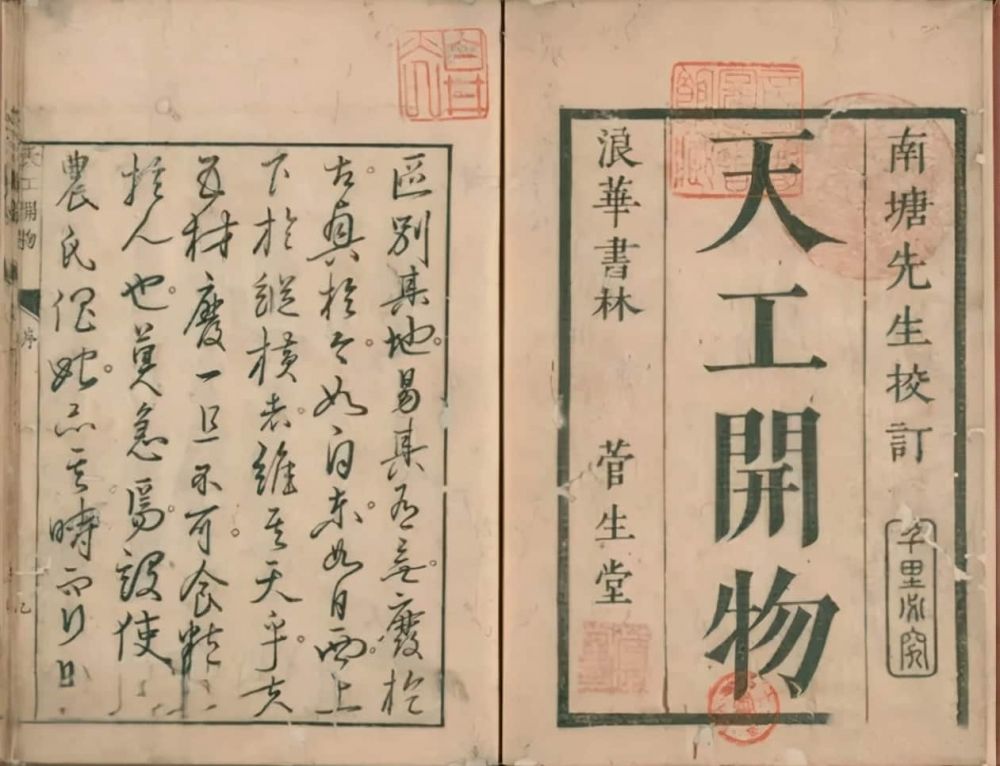 南塘先生校訂
千里必究
天工開物
浪華書林 菅生堂
區別其地。易其有無。廢於
古。於今。如自東。如自西。上
下於縱橫者。維其天乎。夫
五材廢一且不可。食
於人也。莫急焉。設使
農氏。亦其時而行
天工開物
序